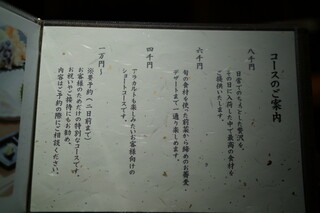 コースのご案内
八千円
日常でのちょっとした贅沢を。
その日に入荷した中で最高の食材を
ご提供いたします。
六千円
旬の食材を使った前菜から締めのお蕎麦、
デザートまで一通り楽しめます。
四千円
アラカルトも楽しみたいお客様向けの
ショートコースです。
一万円〜
※要予約(二日前まで)
お客様のためだけの特別なコースです。
お祝いやご接待にもお勧め。
内容はご予約の際にご相談ください。